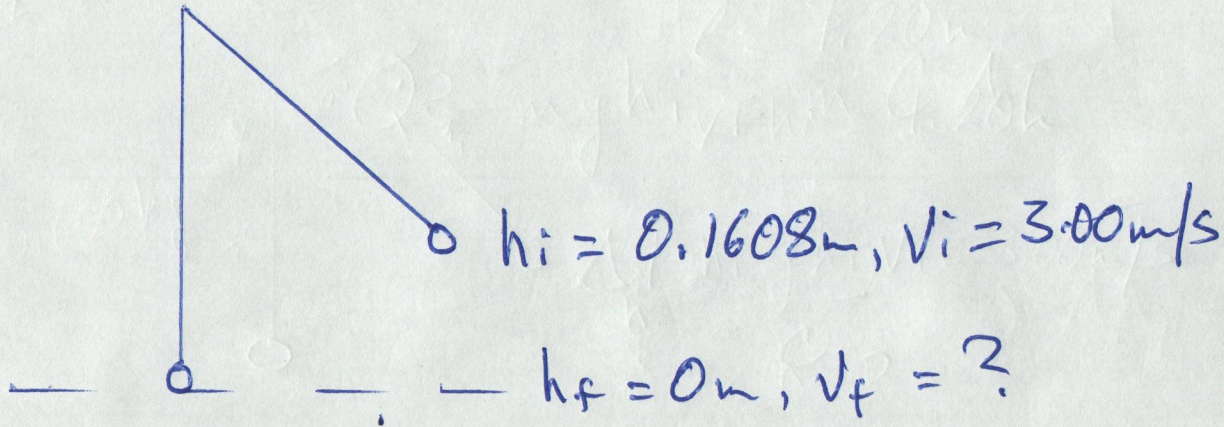 hi = 0.1608m, vi = 3.00m/s
hf = 0m, vf = ?